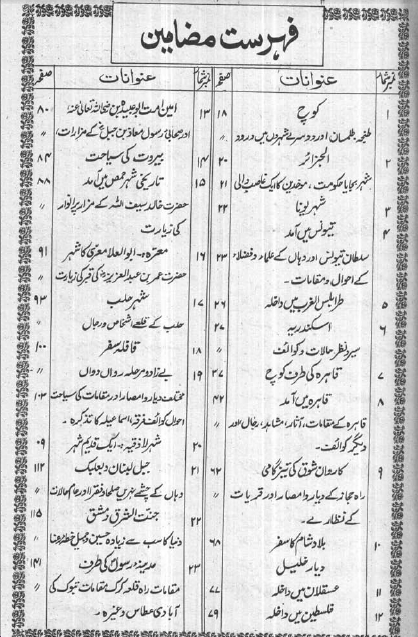 فہرست مضامین
نمبرشمار عنوانات صفحہ
۱ کوچ ۱۸
طنجہ، تلمسان اور دوسرے شہروں میں درود 〃
۲ الجزائر ۲۰
شہر بجایا، حکومت، موحدین کا ایک غاصب والی ۲۱
۳ شہر بونا ۲۲
۴ تیونس میں آمد
سلطان تیونس اور وہاں کے علماء و فضلاء ۲۳
کے احوال و مقامات۔
۵ طرابلس الغرب میں داخلہ ۲۶
۶ اسکندریہ ۲۷
سیر و نظر حالات و کوائف 〃
۷ قاہرہ کی طرف کوچ ۳۷
۸ قاہرہ میں آمد ۴۲
قاہرہ کے مقامات، آثار، مشاہد، رجال اور 〃
دیگر کوائف۔
۹ کاروان شوق کی تیز گامی ۶۲
راہ حجاز کے دیار و امصار اور قریات 〃
کے نظارے۔
۱۰ بلاد شام کا سفر ۶۸
دیار خلیل
۱۱ عسقلان میں داخلہ ۷۷
۱۲ فلسطین میں داخلہ ۷۹
نمبرشمار عنوانات صفحہ
۱۳ امین امت ابو عبیدہ بن رضی اللہ تعالیٰ عنہ ۸۰
اور صحابی رسول معاذ بن جبل کے مزارات، 〃
۱۴ بیروت کی سیاحت ۸۴
۱۵ تاریخی شہر حمص میں آمد ۸۸
حضرت خالد سیف اللہ کے مزار پر انوار 〃
کی زیارت
۱۶ معرّہ۔ ابو العلا معری کا شہر ۹۱
حضرت عمر بن عبد العزیز کی قبر کی زیارت
۱۷ شہر حلب ۹۳
حلب کے قلعے اشخاص و رجال 〃
۱۸ قافلہ سفر ۱۰۰
۱۹ بے زاد و مرحلہ رواں دواں 〃
مختلف دیار و امصار اور مقامات کی سیاحت ۱۰۳
احوال کوائف فرقہ اسماعیلہ کا تذکرہ۔
۲۰ شہر لاذقیہ۔ ایک قدیم شہر ۰۹
۲۱ جبل لبنان و بعلبک ۱۱۲
وہاں کے چشمے نہریں صلحاء فقراء اور عام حالات 〃
۲۲ جنت المشرق دمشق ۱۱۵
دنیا کا سب سے زیادہ حسین و جمیل خطہ 〃
۲۳ مدینہ رسول کی طرف ۱۴۱
مقامات راہ قلعہ کرک مقامات تبوک کی 〃
آبادی عطاس وغیرہ۔